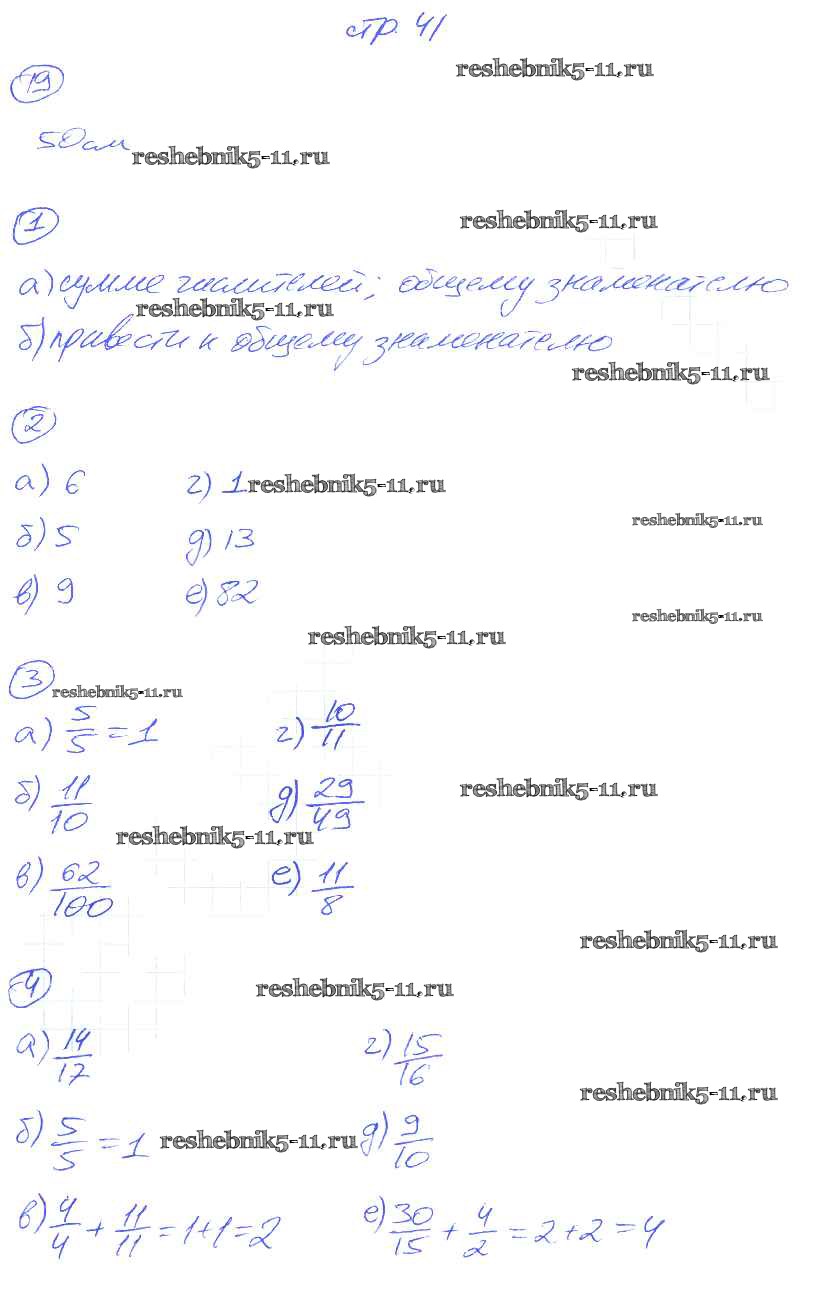 стр. 41
reshebnik5-11.ru
19
50см reshebnik5-11.ru
1 reshebnik5-11.ru
а) сумме числителей; общему знаменателю
reshebnik5-11.ru
б) привести к общему знаменателю
reshebnik5-11.ru
2
а) 6 г) 1 reshebnik5-11.ru
reshebnik5-11.ru
б) 5 д) 13
в) 9 е) 82
reshebnik5-11.ru
reshebnik5-11.ru
3 reshebnik5-11.ru
а) 5/5 = 1 г) 10/11
б) 11/10 д) 29/49 reshebnik5-11.ru
reshebnik5-11.ru
в) 62/100 е) 11/8
reshebnik5-11.ru
4 reshebnik5-11.ru
а) 14/17 г) 15/16
reshebnik5-11.ru
б) 5/5 = 1 reshebnik5-11.ru д) 9/10
в) 4/4 + 11/11 = 1+1=2 е) 30/15 + 4/2 = 2+2=4